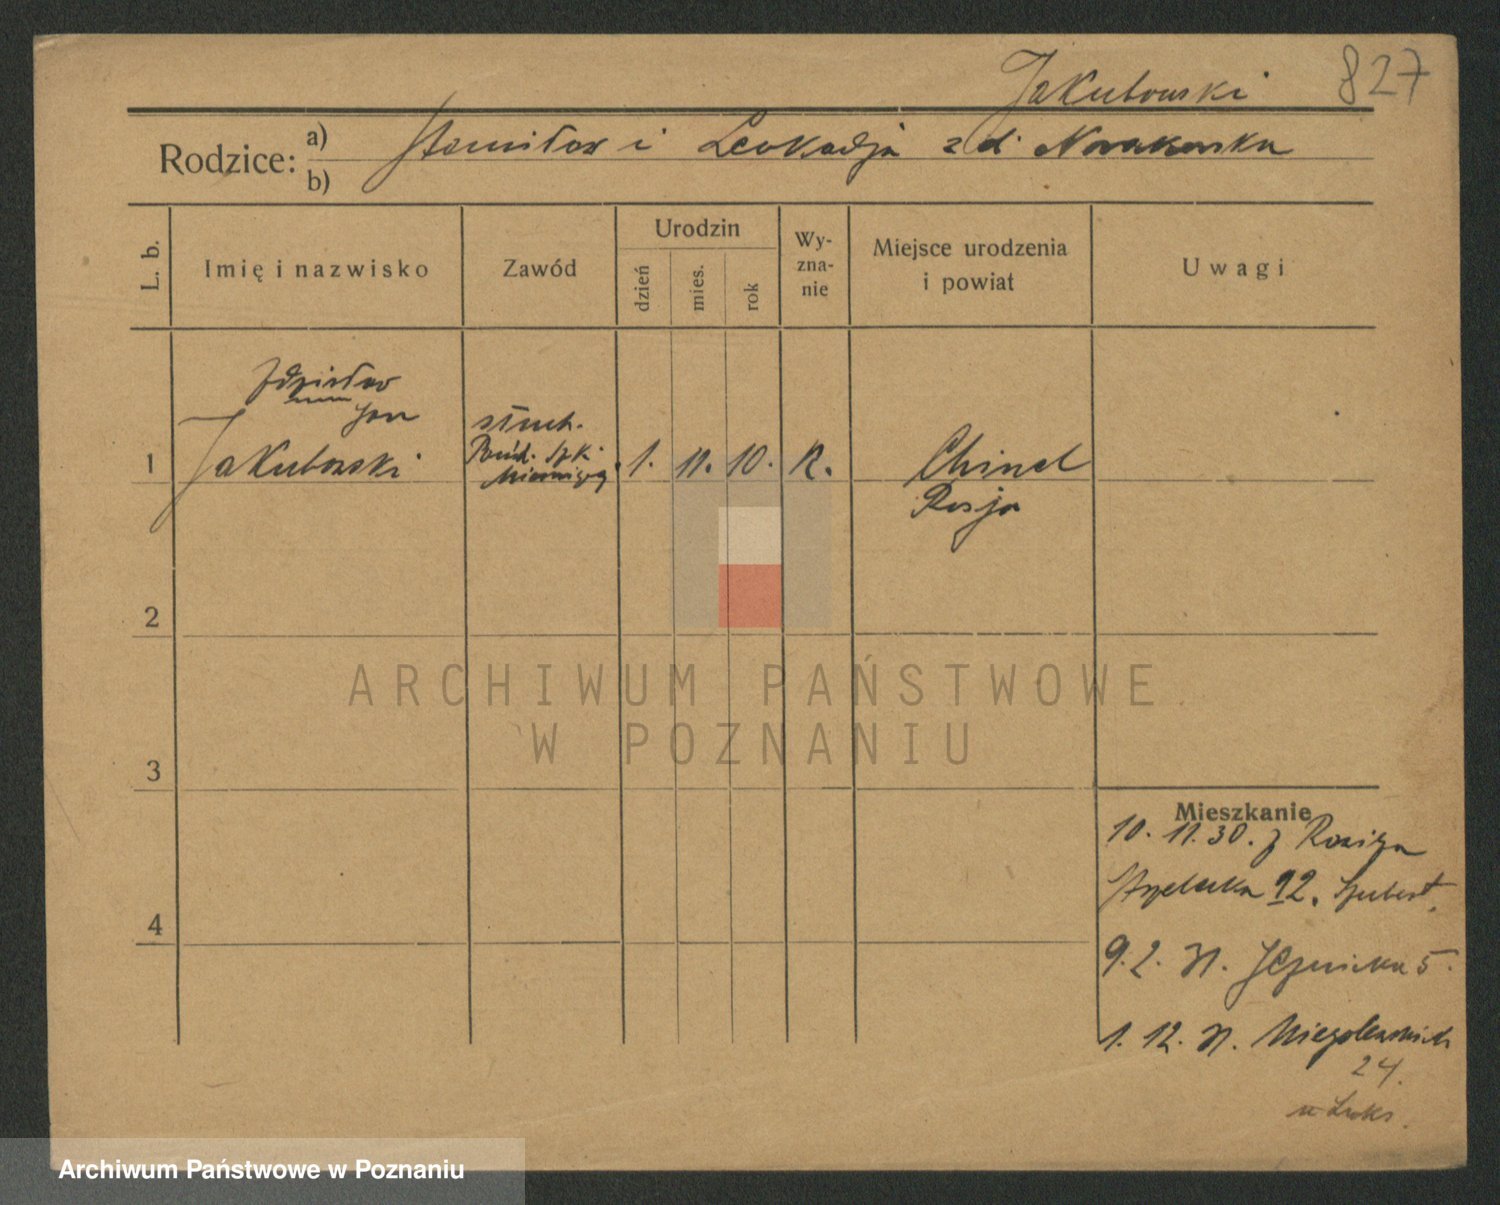 Jakubowski 827
Rodzice: a) Stanisław i Leokadja z d. Nowakowska
b)
L. b. Imię i nazwisko Zawód Urodzin dzień mies. rok Wyznanie Miejsce urodzenia i powiat Uwagi
Zdzisław
Jan
słuch.
1 Jakubowski 1. 11. 10. R. Chinel
Rosja
2
3
4
ARCHIWUM PAŃSTWOWE
W POZNANIU
Mieszkanie
10. 11. 30. z
Strzelecka 12.
9. 2. 31. 5.
1. 12. 31. Niegolewskich
24.
Archiwum Państwowe w Poznaniu